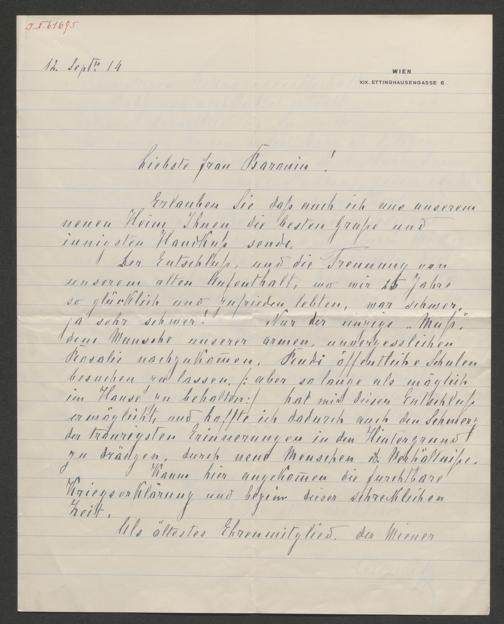 J.N. 61695
12. Sept. 14
WIEN
XIX. ETTINGHAUSENGASSE 6
Liebste Frau Baronin!
Erlauben Sie daß auch ich aus unserem
neuen Heim Ihnen die besten Grüße und
innigsten Handkuß sende.
Der Entschluß, und die Trennung von
unserem alten Aufenthalt, wo wir 25 Jahre
so glücklich und zufrieden lebten, war schwer,
ja sehr schwer! Nur der einzige „Muß",
dem Wunsche unserer armen, unvergesslichen
Rosalie nachzukommen, Rudi öffentliche Schulen
besuchen zu lassen, /: aber so lange als möglich
im Hause zu behalten :/ hat mir diesen Entschluß
ermöglicht, und hoffte ich dadurch auch den Schmerz
der traurigsten Erinnerungen in den Hintergrund
zu drängen, durch neue Menschen & Verhältniße.
Kaum hier angekommen die furchtbare
Kriegserklärung und beginn dieser schrecklichen
Zeit.
Als ältestes Ehrenmitglied der Wiener